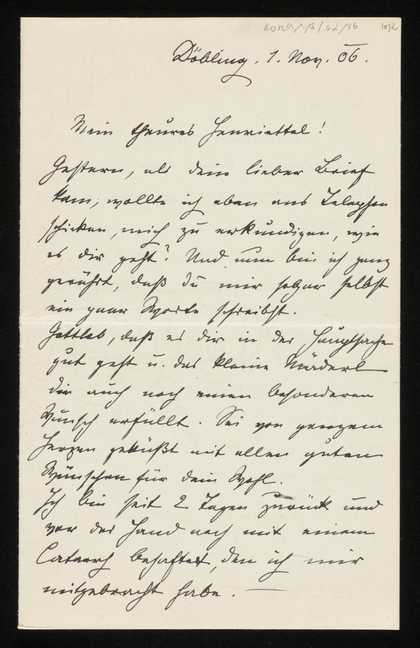 Döbling, 1. Nov. 06.
Mein theures Henriettel!
Gestern, als dein lieber Brief
kam, wollte ich eben ans Telephon
schicken, mich zu erkundigen, wie
es dir geht? Und nun bin ich ganz
gerührt, daß du mir sogar selbst
ein paar Worte schreibst.
Gottlob, daß es dir in der Hauptsache
gut geht u. das kleine Mäderl
dir auch noch einen besonderen
Wunsch erfüllt. Sei von ganzem
Herzen geküßt mit allen guten
Wünschen für dein Wohl.
Ich bin seit 2 Tagen zurück und
vor der Hand noch mit einem
Catarrh behaftet, den ich mir
mitgebracht habe. —